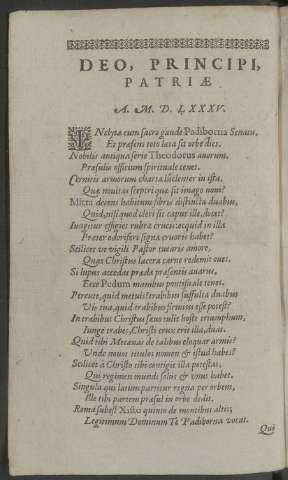 DEO, PRINCIPI,
PATRIÆ
A. M. D. LXXXV.
INclyta cum sacro gaude Padiborna Senatu,
Et præsens toto læta sit orbe dies.
Nobilis antiqua serie Theodorus avorum,
Præsulis officium spirituale tenet.
Cernitis armorum charta lucenter in ista,
Quæ mitræ sceptri quæ sit imago novi?
Mitra decens habitum fibris distincta duabus,
Quid, nisi quod cleri sit caput ille, docet?
Jungitur effigies rubræ crucis: ecquid in illa
Præter odoriferi signa cruoris habet?
Scilicet ut vigili Pastor tueatur amore,
Quas Christus lacera carne redemit oves.
Si lupus accedat præda præsentis avarus,
Ecce Pedum manibus pontificale tenet.
Percute, quid metuis? trabibus suffulta duabus
Vis tua, quid trabibus firmius esse potest?
In trabibus Christus sævo tulit hoste triumphum,
Junge trabes, Christi crux erit illa, duas.
Quid tibi Mecænas de talibus eloquar armis?
Unde novus titulos nomen & istud habes?
Scilicet à Christo tibi contigit illa potestas,
Qui regimen mundi solus & unus habet.
Singula qui latum partitur regna per orbem,
Ille tibi partem præsul in orbe dedit.
Roma subest Xisto quinto de montibus altis;
Legitimum Dominum Te Padiborna vocat.
Qui